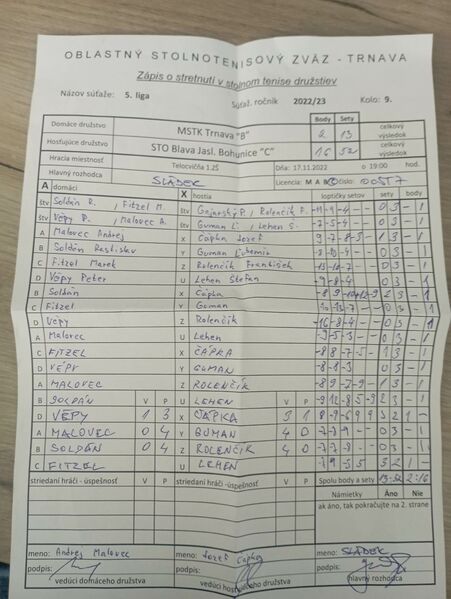 OBLASTNÝ STOLNOTENISOVÝ ZVÄZ - TRNAVA
Zápis o stretnutí v stolnom tenise družstiev
Názov súťaže: 5. liga Súťaž. ročník 2022/23 Kolo: 9.
Body Sety
Domáce družstvo MSTK Trnava "B" 2 13 celkový výsledok
Hosťujúce družstvo STO Blava Jasl. Bohunice "C" 16 52 celkový výsledok
Hracia miestnosť Telocvičňa 1.ZŠ Dňa: 17.11.2022 o 19:00 hod.
Hlavný rozhodca SLÁDEK Licencia: M A B C číslo:
A domáci X hostia loptičky setov sety body
štv Soldán R. , Fitzel M. štv Gajarský P., Rolenčík F. -11 -9 -4 - - 0 3 - 1
štv Vépy P. , Malovec A. štv Guman Ľ., Lehen Š. -7 -5 -4 - - 0 3 - 1
A Malovec Andrej X Čápka Jozef 9 -7 -8 -3 1 3 - 1
B Soldán Rastislav Y Guman Ľubomír 0 3 - 1
C Fitzel Marek Z Rolenčík František 0 3 - 1
D Vépy Peter U Lehen Štefan -9 -8 -4 0 3 - 1
B Soldán X Čápka 2 3 - 1
C Fitzel Y Guman 0 3 - 1
D Vépy Z Rolenčík -16 -8 -4 - - 0 3 - 1
A Malovec U Lehen -9 -5 -3 - - 0 3 - 1
C FITZEL X ČÁPKA -8 8 -7 -5 1 3 - 1
D VÉPY Y GUMAN -8 -8 -3 0 3 - 1
A MALOVEC Z ROLENČÍK -8 9 -7 -9 1 3 - 1
B SOLDÁN V P U LEHEN V P -9 12 -8 5 -9 2 3 - 1
D VÉPY 1 3 X ČÁPKA 3 1 8 -9 -6 9 9 3 2 1 -
A MALOVEC 0 4 Y GUMAN 4 0 -7 -7 -9 - - 0 3 - 1
B SOLDÁN 0 4 Z ROLENČÍK 4 0 -7 -7 -8 - - 0 3 - 1
C FITZEL U LEHEN 3 2 1 -
striedaní hráči - úspešnosť V P striedaní hráči -úspešnosť V P Spolu body a sety 13:52 2:16
Námietky Áno Nie
ak áno, tak pokračujte na 2. strane
meno: Andrej Malovec meno: Jozef Čápka meno: SLÁDEK
podpis: podpis: podpis:
vedúci domáceho družstva vedúci hosťujúceho družstva hlavný rozhodca